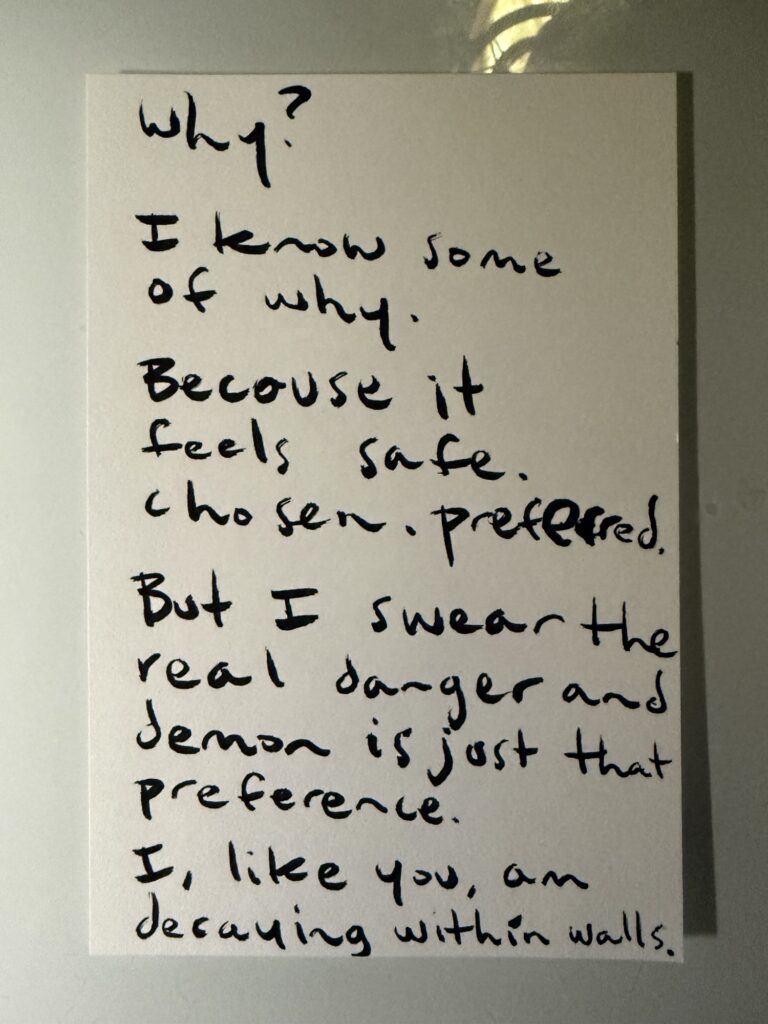 Why?
I know some
of why.
Because it
feels safe.
chosen. preferred.
But I swear the
real danger and
demon is just that
preference.
I, like you, am
decaying within walls.